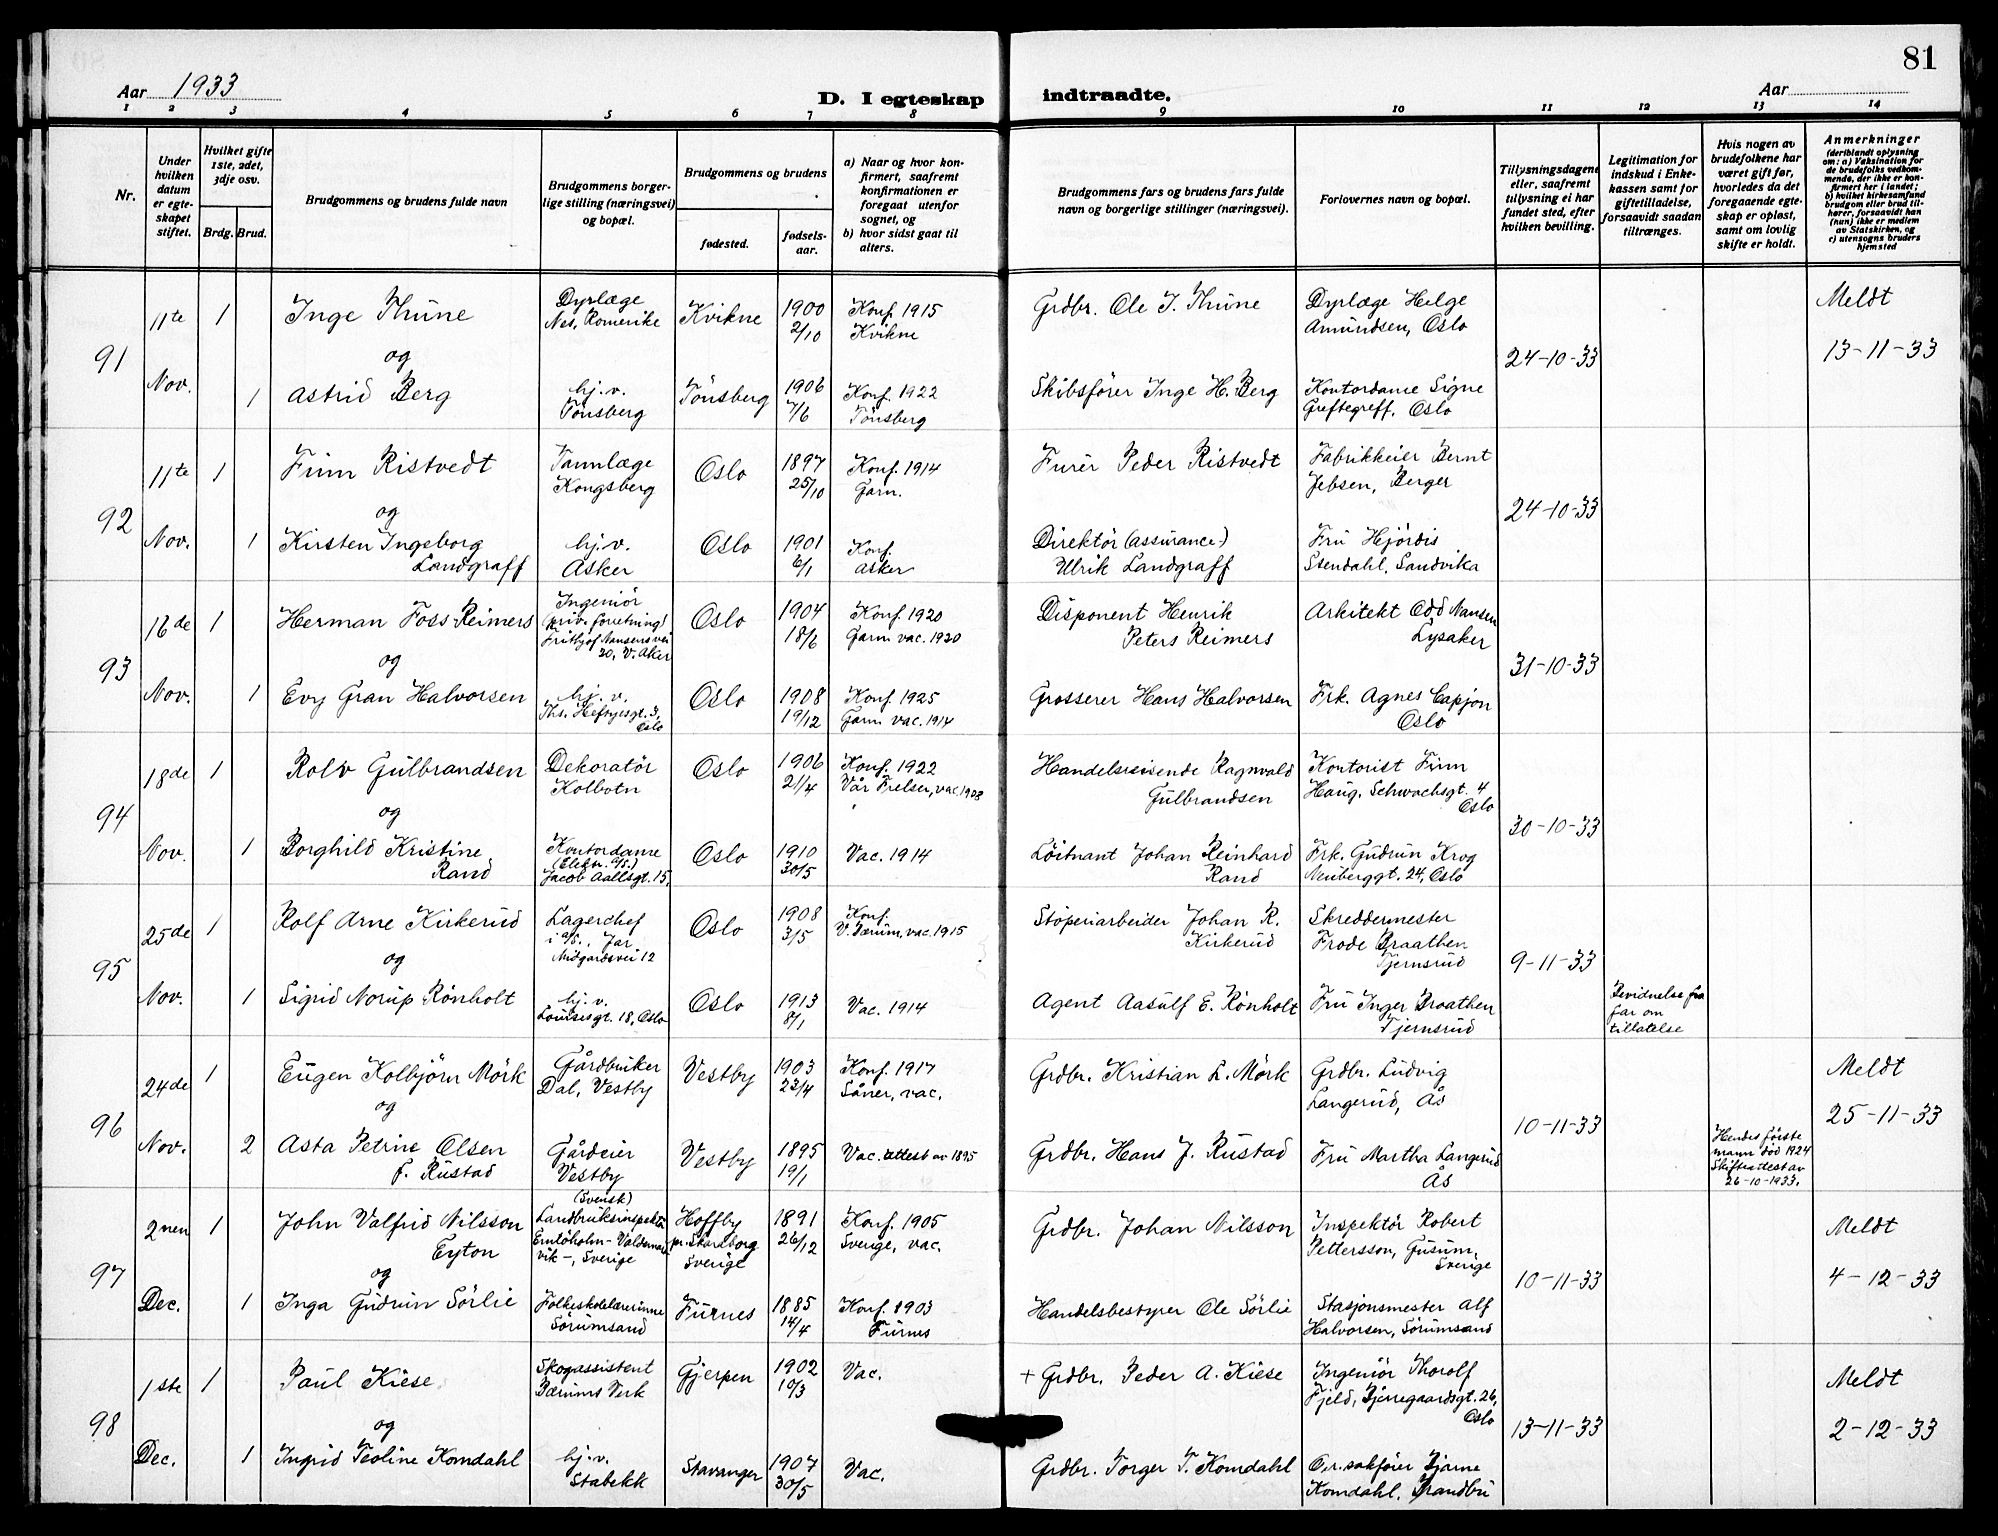 81
Aar 1933
D. I egteskap indtraadte.
Aar
1 2 3 4 5 6 7 8 9 10 11 12 13 14
Nr.
Under hvilken datum er egteskapet stiftet.
Hvilket gifte 1ste, 2det, 3dje osv.
Brdg. Brud.
Brudgommens og brudens fulde navn
Brudgommens borgerlige stilling (næringsvei) og bopæl.
Brudgommens og brudens
fødested.
fødselsaar.
a) Naar og hvor konfirmert, saafremt konfirmationen er foregaat utenfor sognet, og
b) hvor sidst gaat til alters.
Brudgommens fars og brudens fars fulde navn og borgerlige stillinger (næringsvei).
Forlovernes navn og bopæl.
Tillysningsdagene eller, saafremt tillysning ei har fundet sted, efter hvilken bevilling.
Legitimation for indskud i Enkekassen samt for giftetilladelse, forsaavidt saadan tiltrænges.
Hvis nogen av brudefolkene har været gift før, hvorledes da det foregaaende egteskap er opløst, samt om lovlig skifte er holdt.
Anmerkninger
(deriblandt oplysning om: a) Vaksination for de brudefolks vedkommende, der ikke er konfirmert her i landet; b) hvilket kirkesamfund brudgom eller brud tilhører, forsaavidt han (hun) ikke er medlem av Statskirken, og c) utensogns bruders hjemsted
91
11te Nov.
1
Inge Thune
Dyrlæge
Nes, Romerike
Kvikne
1900
2/10
Konf. 1915
Kvikne
Grdbr. Ole I. Thune
Dyrlæge Helge
Amundsen, Oslo
24-10-33
Meldt
13-11-33
og
1
Astrid Berg
hj.v.
Tønsberg
Tønsberg
1906
7/6
Konf. 1922
Tønsberg
Skibsfører Inge H. Berg
Kontordame Signe
Greftegreff, Oslo
92
11te Nov.
1
Finn Ristvedt
Tannlæge
Kongsberg
Oslo
1897
25/10
Konf. 1914
Garn.
Furer Peder Ristvedt
Fabrikkeier Bernt
Jebsen, Berger
24-10-33
og
1
Kirsten Ingeborg
Landgraff
hj.v.
Asker
Oslo
1901
6/1
Konf.
Asker
Direktør (assurance)
Ulrik Landgraff
Fru Hjørdis
Stendahl, Sandvika
93
16de Nov.
1
Herman Foss Reimers
Ingeniør
(priv. forretning)
Fritjof Nansens vei
20, V. Aker
Oslo
1904
18/6
Konf. 1920
Garn. vac. 1920
Disponent Henrik
Peters Reimers
Arkitekt Odd Nansen
Lysaker
31-10-33
og
1
Evy Gran Halvorsen
hj.v.
Ths. Heftyesgt. 3,
Oslo
Oslo
1908
19/12
Konf. 1925
Garn. vac. 1914
Grosserer Hans Halvorsen
Frk. Agnes Capjon
Oslo
94
18de Nov.
1
Rolv Gulbrandsen
Dekoratør
Kolbotn
Oslo
1906
21/4
Konf. 1922
Vår Frelser, vac. 1908
Handelsreisende Ragnvald
Gulbrandsen
Kontorist Finn
Haug, Schwachsgt. 4
Oslo
30-10-33
og
1
Borghild Kristine
Rand
Kontordame
(Elektr. a/s.)
Jacob Aallsgt. 15,
Oslo
1910
30/5
Vac. 1914
Løitnant Johan Reinhard
Rand
Frk. Gudrun Krog
Neuberggt. 24, Oslo
95
25de Nov.
1
Rolf Arne Kirkerud
Lagerchef
i a/s., Jar
Midgardsvei 12
Oslo
1908
3/5
Konf.
V. Bærum, vac. 1915
Støperiarbeider Johan R.
Kirkerud
Skreddermester
Frode Braathen
Tjernsrud
9-11-33
og
1
Sigrid Norup Rønholt
hj.v.
Louisesgt. 18, Oslo
Oslo
1913
8/1
Vac. 1914
Agent Aasulf E. Rønholt
Fru Inger Braathen
Tjernsrud
Bevidnelse fra
far om
tillatelse
96
24de Nov.
1
Eugen Kolbjørn Mørk
Gårdbruker
Dal, Vestby
Vestby
1903
23/4
Konf. 1917
Såner, vac.
Grdbr. Kristian L. Mørk
Grdbr. Ludvig
Langerud, Ås
10-11-33
Meldt
25-11-33
og
2
Asta Petrine Olsen
f. Rustad
Gårdeier
Vestby
Vestby
1895
19/1
Vac. attest av 1895
Grdbr. Hans J. Rustad
Fru Martha Langerud
Ås
Hendes første
mann død 1924
Skifteattest av
26-10-1933.
97
2nen Dec.
1
John Valfrid Nilsson
Eyton
(Svensk)
Landbruksinspektør
Valdemars
vik-, Sverige
Hoffby
Sverige
1891
26/12
Konf. 1905
Sverige, vac.
Grdbr. Johan Nilsson
Inspektør Robert
Pettersson, Gusum,
Sverige
10-11-33
Meldt
4-12-33
og
1
Inga Gudrun Sørlie
Folkeskolelærerinne
Sørumsand
Furnes
1885
14/4
Konf. 1903
Furnes
Handelsbestyrer Ole Sørlie
Stasjonsmester Alf
Halvorsen, Sørumsand
98
1ste Dec.
1
Paul Kiese
Skogassistent
Bærums Verk
Gjerpen
1902
10/3
Vac.
+ Grdbr. Peder A. Kiese
Ingeniør Thorolf
Fjeld, Bjerregaardsgt. 26,
Oslo
13-11-33
Meldt
2-12-33
og
1
Ingrid Teoline Komdahl
hj.v.
Stabekk
Stavanger
1907
30/5
Vac.
Grdbr. Torger T. Komdahl
O.r.sakfører Bjarne
Komdahl, Brandbu